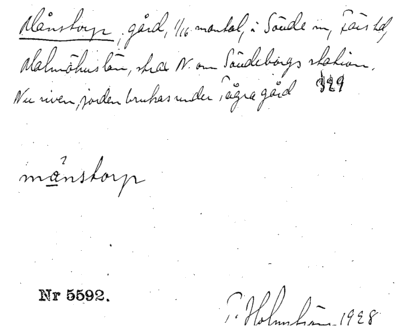 Månstorp, gård, 1/16 mantal, i Sönde sn, Färs hd,
Malmöhus län, strax N. om Söndeborgs station.
Nu riven, jorden brukas under Tågra gård
månstorp
Nr 5592.
T. Holmström 1928